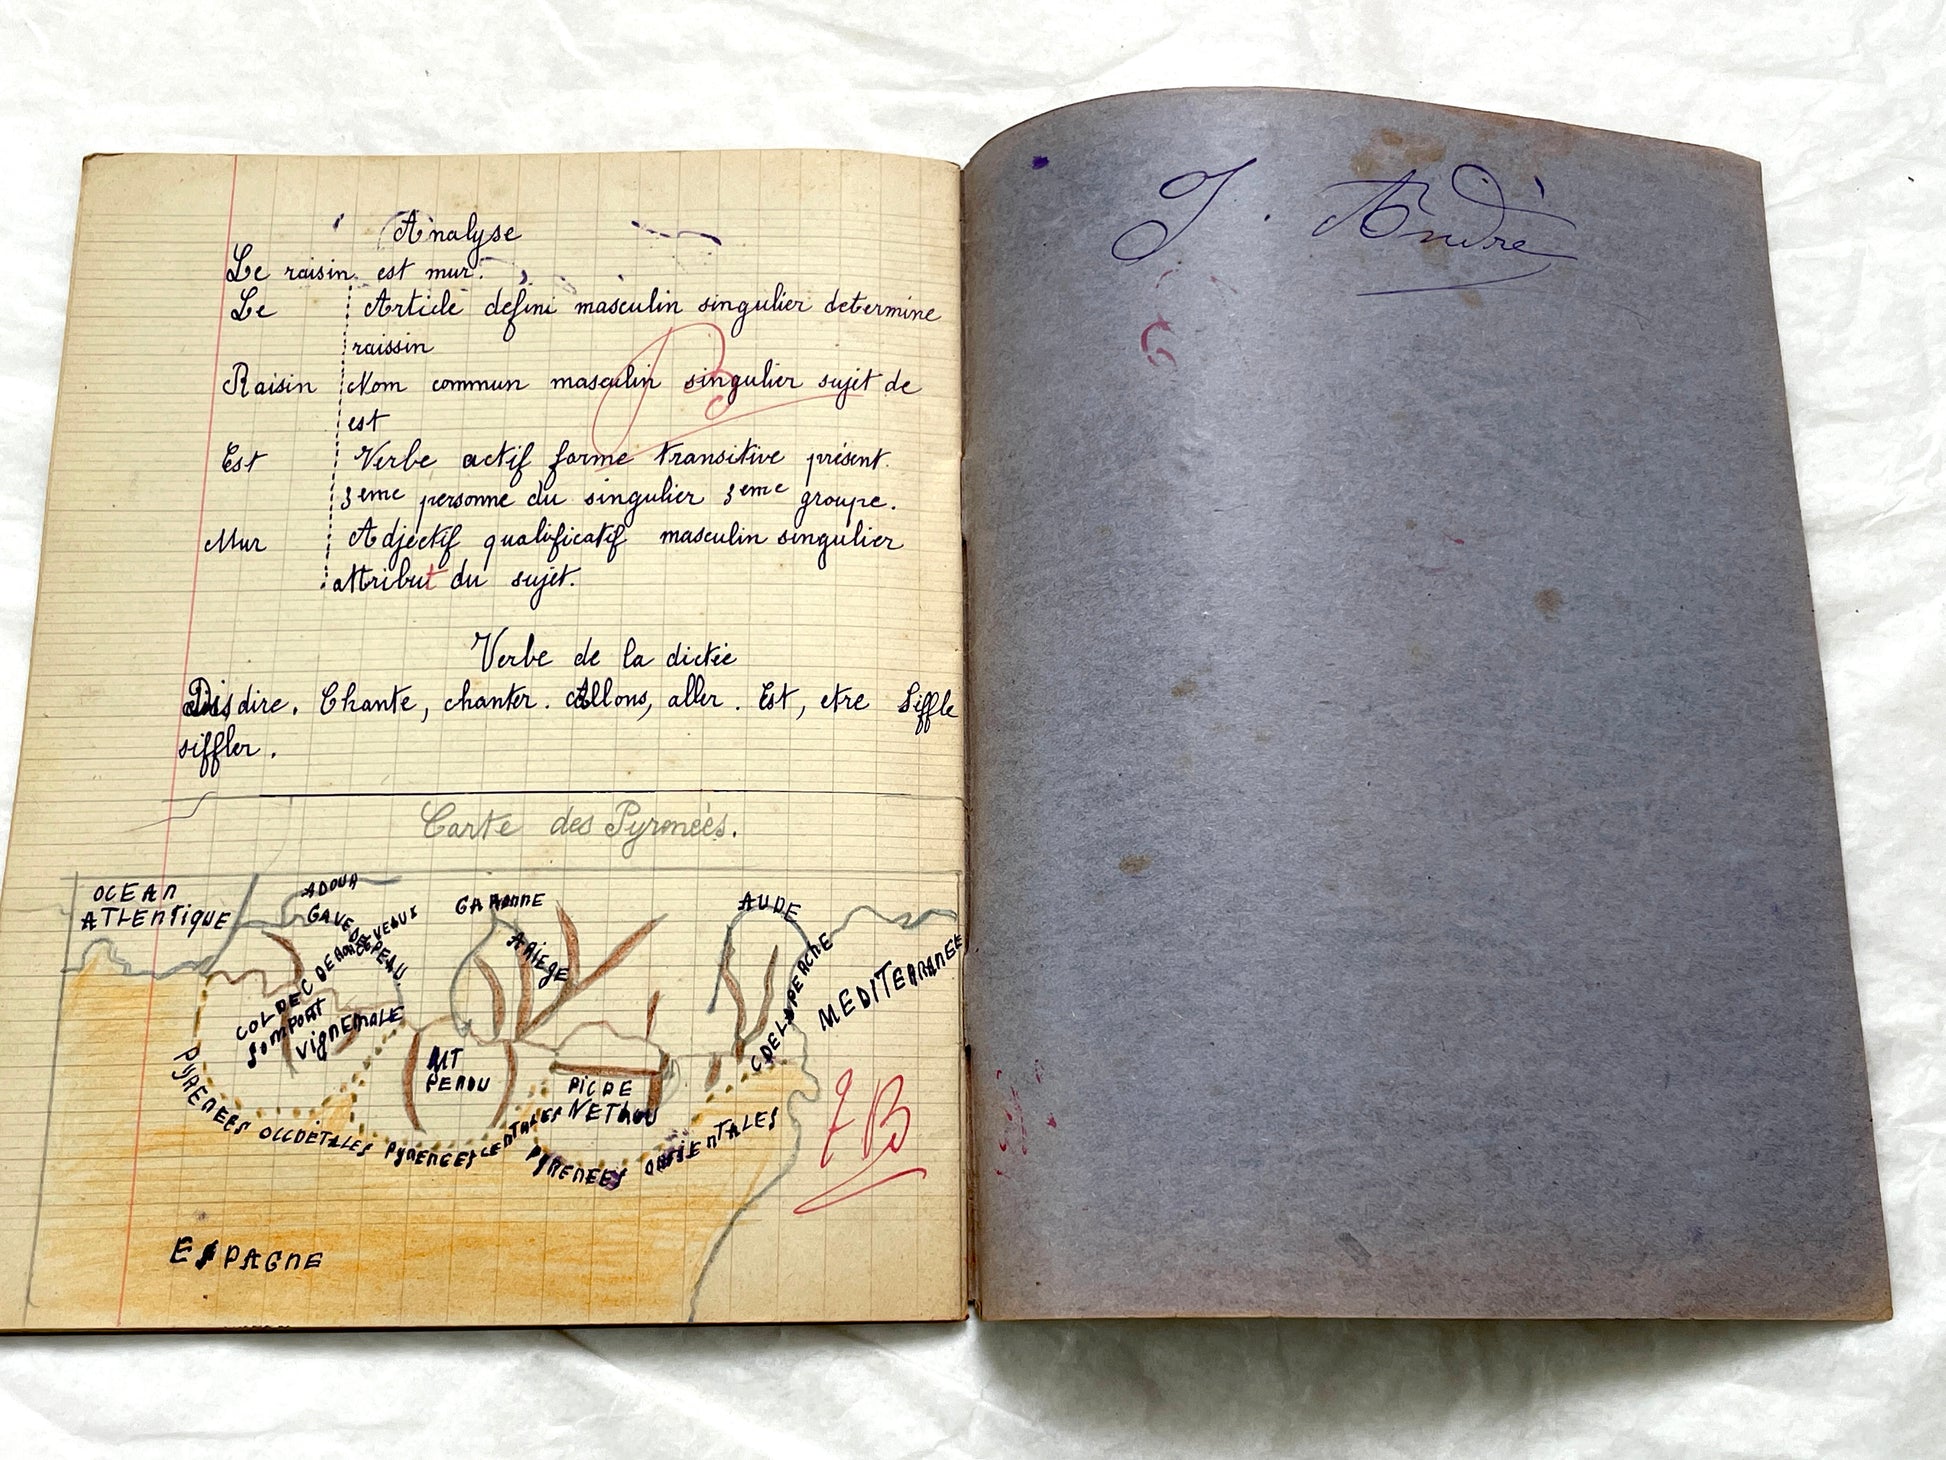 Analyse
Le raisin est mur.
Le Article defini masculin singulier determine
raissin
Raisin Nom commun masculin singulier sujet de
est
Est Verbe actif forme transitive présent.
3eme personne du singulier 3eme groupe.
Mur Adjectif qualificatif masculin singulier
attribut du sujet.
B
Verbe de la dictée
Dis, dire. Chante, chanter. Allons, aller. Est, etre Siffle
siffler.
Carte des Pyrenéés.
OCEAN
ATLENTIQUE
ADOUR
GAVE DE PEAU
GARONNE
ARIEGE
AUDE
COL DE
SOMPORT
VIGNEMALE
MT
PERDU
PIC DE
NETHOU
C DE LA PERCHE
MEDITERRANEE
PYRENEES OCCDETALES
PYRENEES CENTRALES
PYRENEES ORIENTALES
ESPAGNE
TB
J. André